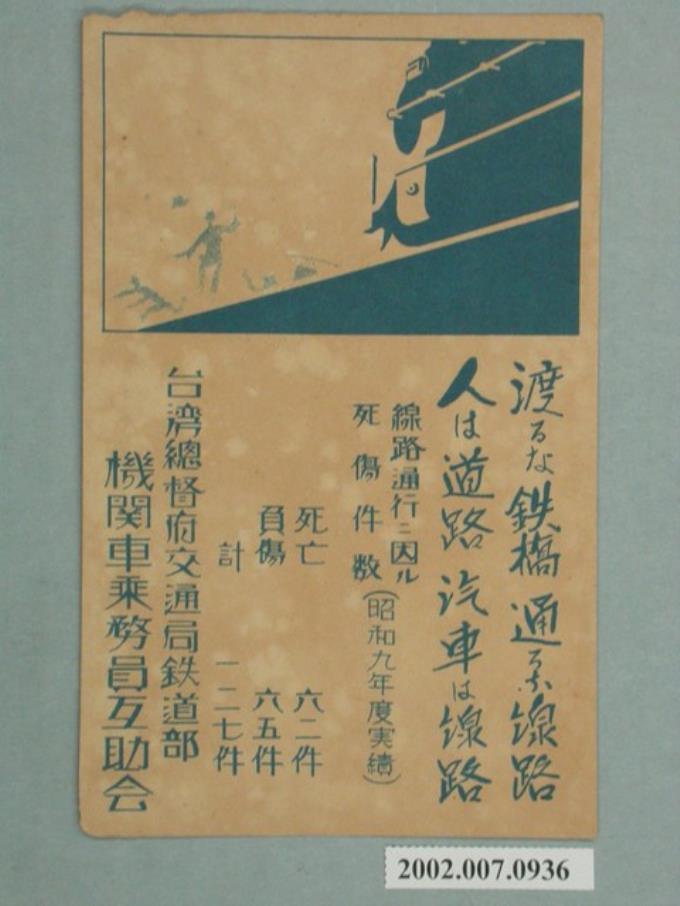 渡るな鉄橋 通るな線路
人は道路 汽車は線路
線路通行ニ因ル
死傷件数(昭和九年度実績)
死亡 六二件
負傷 六五件
計 一二七件
台湾總督府交通局鉄道部
機関車乗務員互助会
2002.007.0936